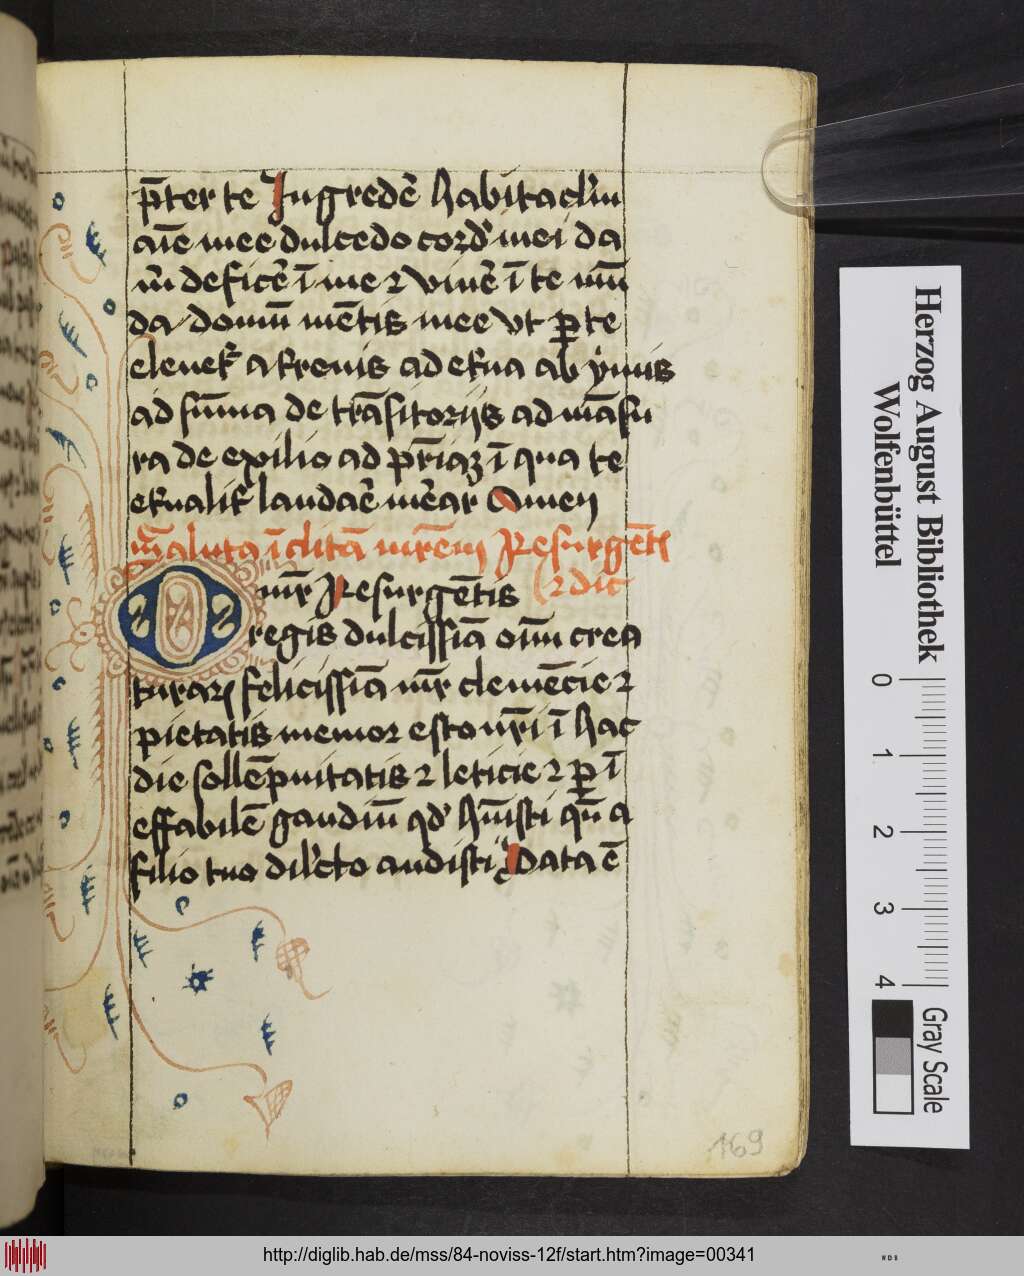 p̄ter te Ingredē habitaclūm
aīe mee dulcedo cord' mei da
m̄ deficē ī me ⁊ vivē ī te mīī
da domū mētis mee vt ꝑ te
elever a trenis ad etna ab ymis
ad sūma de trāsitorijs ad māsu
ra de exilio ad pr̄iaꝫ ī qua te
etnalit' laudaē mēar Amen
Saluta īclitā mr̄em Resurgētis
⁊ dic
O mr̄ Resurgētis
regis dulcissīa oīm crea
turarꝝ felicissīa mr̄ clemēcie ⁊
pietatis memor esto nr̄i ī hac
die sollēpnitatis ⁊ leticie ⁊ ꝑ ī
effabilē gaudiū qd' hūisti qn̄ a
filio tuo dil'cto audisti Data ē
169
Herzog August Bibliothek
Wolfenbüttel
0 1 2 3 4
Gray Scale
http://diglib.hab.de/mss/84-noviss-12f/start.htm?image=00341